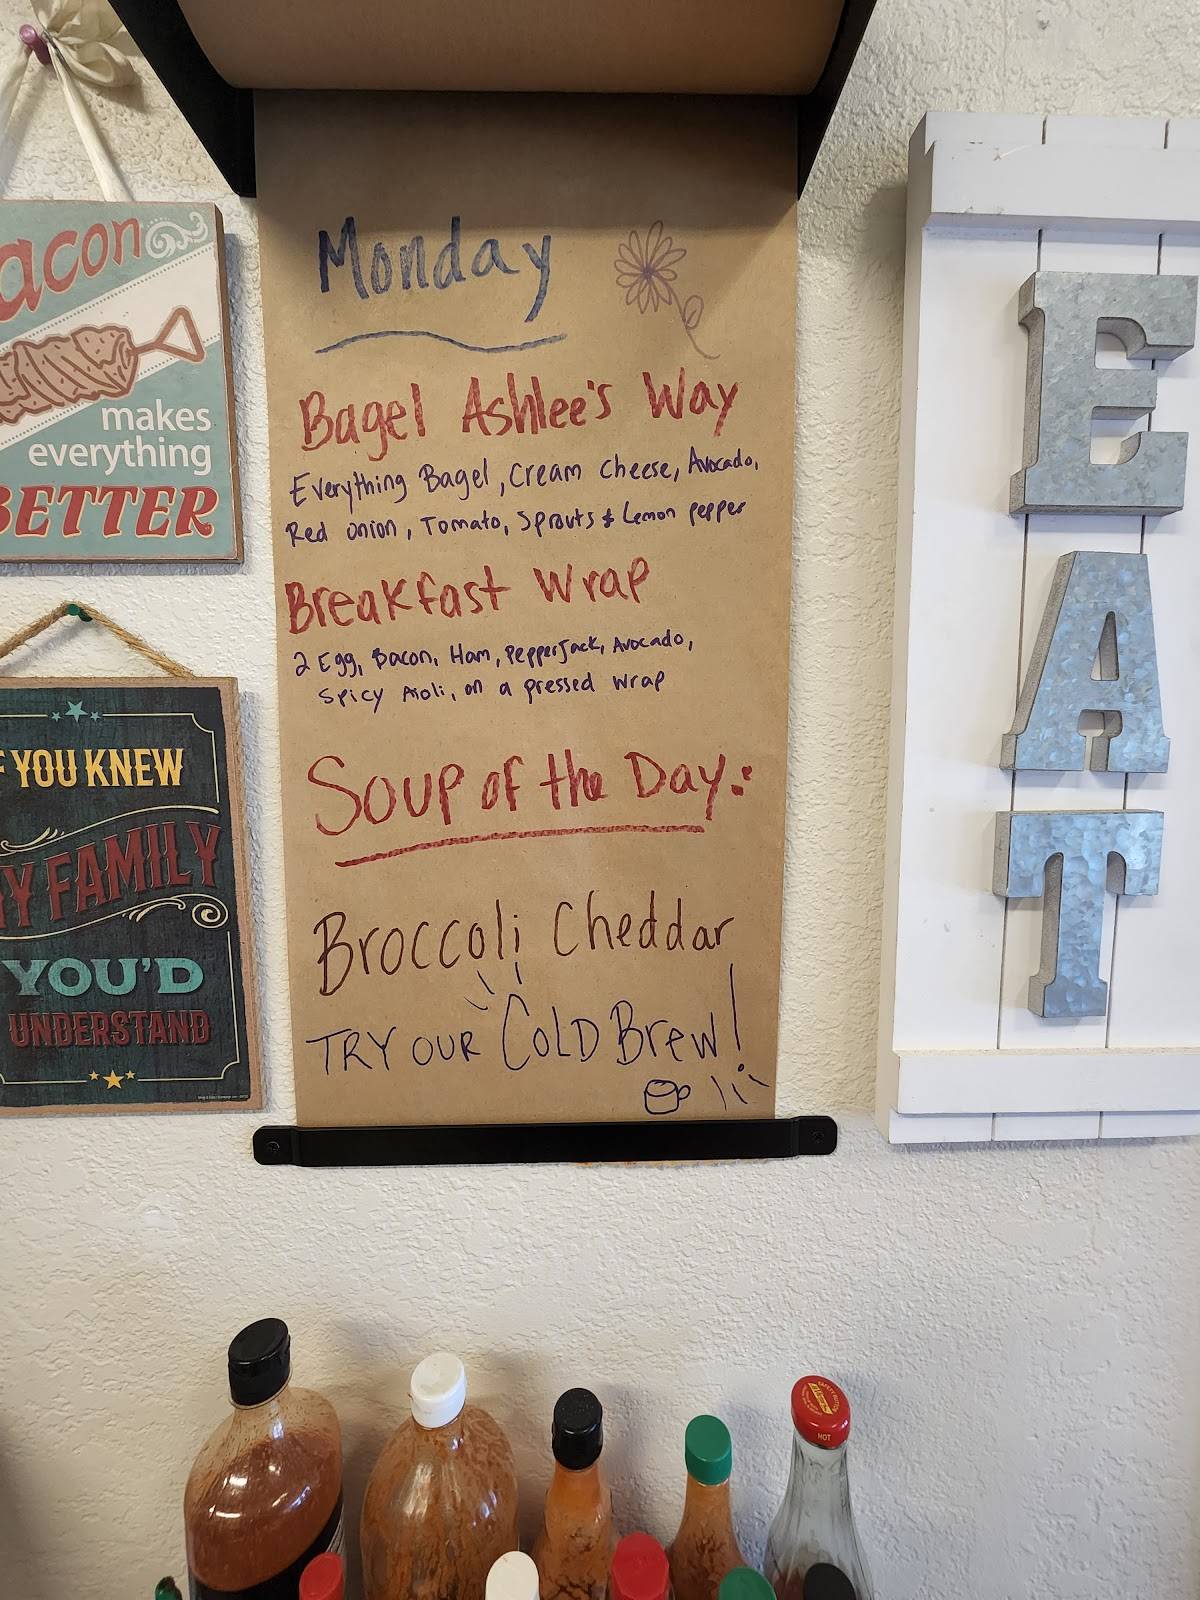 Monday
Bagel Ashlee's Way
Everything Bagel, Cream Cheese, Avocado,
Red onion, Tomato, Sprouts & Lemon pepper
Breakfast Wrap
2 Egg, Bacon, Ham, PepperJack, Avocado,
Spicy Aioli, on a pressed wrap
Soup of the Day:
Broccoli Cheddar
TRY OUR COLD Brew!
acon
makes
everything
BETTER
F YOU KNEW
Y FAMILY
YOU'D
UNDERSTAND
EAT
HOT